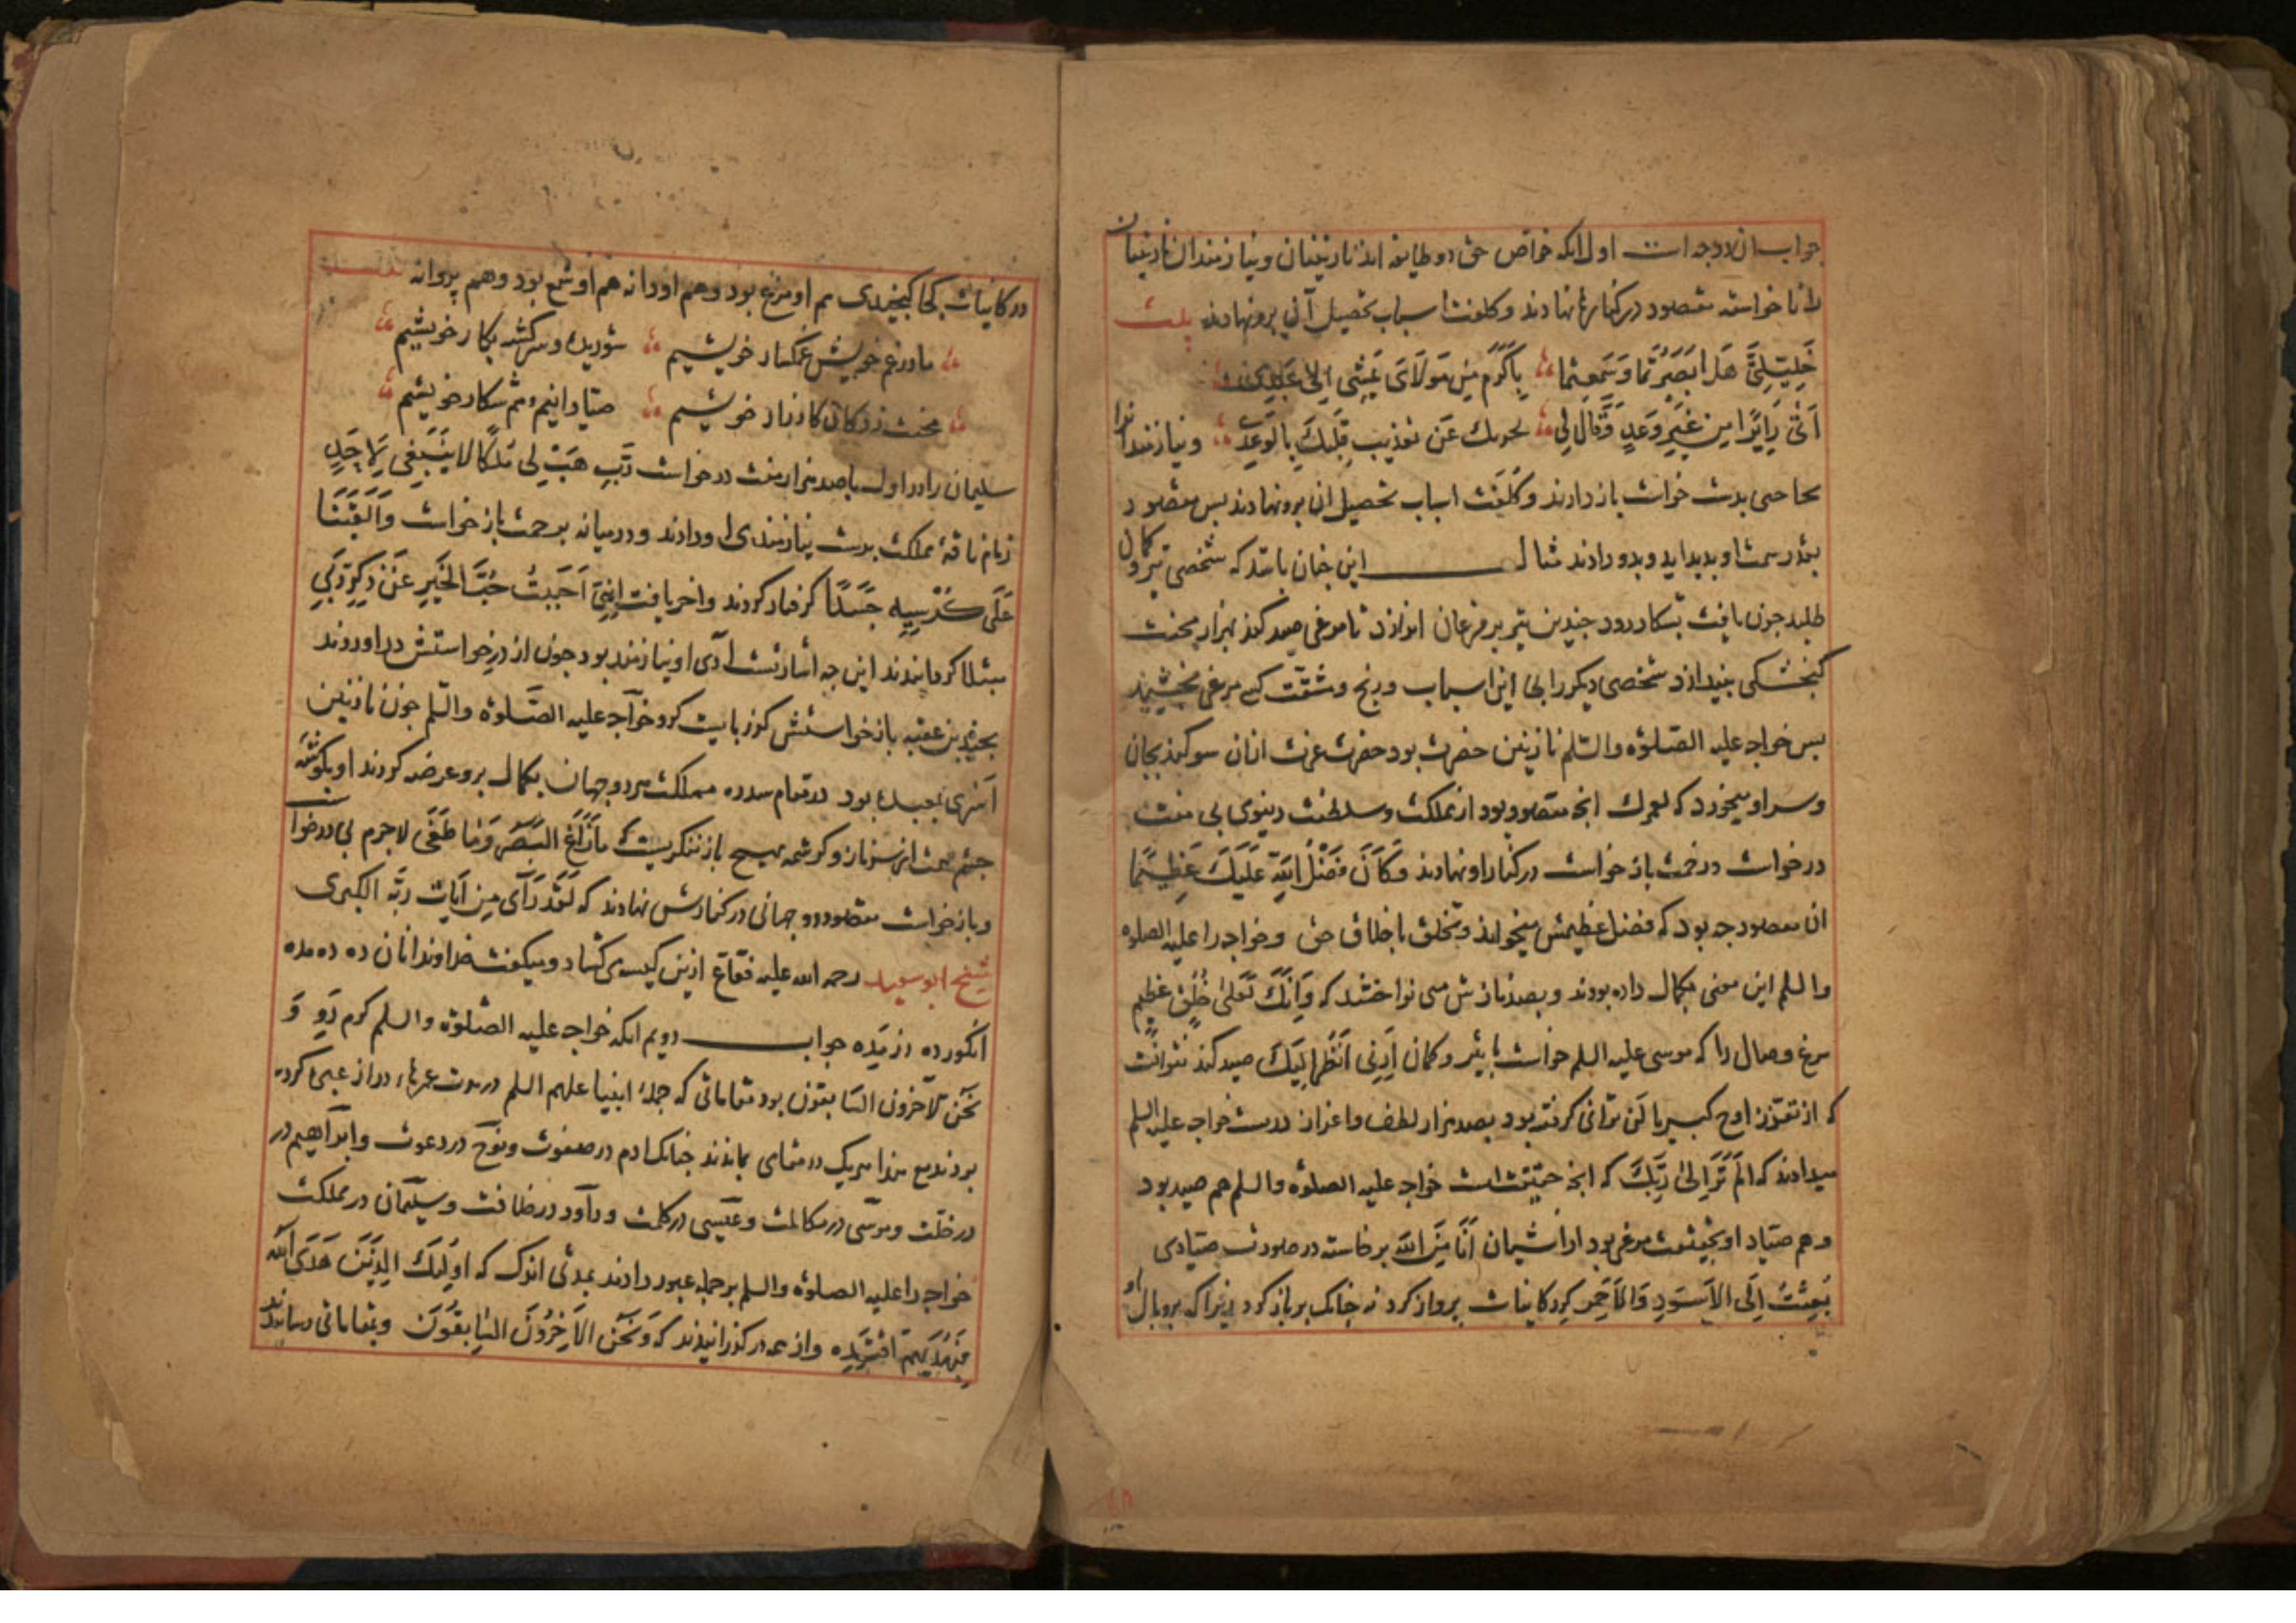 جواب از دو وجه است اول انکه خواص حق دو طایفه اند نازنینان و نیازمندان نازنینان
را ناخواسته مقصود در کنار نهادند و کلفت اسباب تحصیل آن برو نهادند بیت
خَلِیلَیَّ هَل اَبصَرتُما وَ سَمِعتُما یاکرَم مِن مَولایَ یَمشی اِلی عَبدِ
اَتی زایِرًا مِن غَیرِ وَعدٍ وَ قالَ لی عَن تعذیبِ قَلبِکَ بالوَعدِ و نیازمندانرا
بدست خواست باز دادند و کلفت اسباب تحصیل ان برو نهادند بس مقصود
بقدر سمت او بدید اید و بدو دادند مثال این جنان باشد که شخصی تیر و کمان
طلبد جون یافت بشکار رود جندین تیر بر مرغان اندازد تا مرغی صید کند بهزار محنت
کنجشکی بیندازد شخصی دیکر را بی این اسباب و رنج و مشقت کسی مرغی بخشیدند
بس خواجه علیه الصلوة والسلم نازنین حضرت بود حضرت عزت انان سوکند بجان
و سر او میخورد که لعمرک انچه مقصود بود از مملکت و سلطنت دینوی بی منت
درخواست و زحمت بازخواست در کنار او نهادند وَکَانَ فَضلُ اللهِ عَلَیکَ عَظِیمًا
ان مقصود جه بود که فضل عظیمش میخواند و تخلق باخلاق حق و خواجه را علیه الصلوه
والسلم این معنی بکمال داده بودند و بصد نازش می نواختند که وَاِنَّکَ لَعَلی خُلُقٍ عَظیم
مرغ وصال را که موسی علیه السلم خواست با تیر و کمان اَرِنی اَنظُر اِلَیکَ صید کند نتوانست
که از تعزز اوج کبریا لَن تَرانی کرفته بود بصد هزار لطف و اعزاز در دست خواجه علیه السلم
میدادند که اَلَم تَرَ اِلی رَبِّکَ که انچه حقیقتست خواجه علیه الصلوة والسلم هم صید بود
و هم صیاد او بحقیقت مرغی بود از اشیان اَنَا مِنَ الله برخاسته در صورت صیادی
بُعِثتُ اِلَی الاَسوَدِ وَالاَحمَرِ کرد کاینات برواز کرد نه جنانک بر باز کرد زیرا که بر و بال او
در کاینات کجا کنجیدی هم او مرغ بود و هم او دانه هم او شمع بود و هم پروانه
ما در غم خویش غمکسار خویشیم شوریده و سرکشته بکار خویشیم
محنت زدکان کار زار خویشیم صیادانیم و هم شکار خویشیم
سلیمان را در اول با صد هزار منت درخواست رَبِّ هَب لی مُلکًا لا یَنبَغی لِاَحَدٍ
زمام ناقه مملکت بدست نیازمندی او دادند و در میانه بزحمت بازخواست وَاَلقَینَا
عَلی کُرسِیِّه جَسَدًا گرفتار کردند و اخر بافت اِنّی اَحبَبتُ حُبَّ الخَیرِ عَن ذِکرِ رَبّی
مبتلا کردانیدند این جه اشارتست آری او نیازمند بود جون از در خواستش در اوردند
بجندین عقبه بازخواستش کذر بایست کرد خواجه علیه الصلوة والسلم جون نازنین
اَسری بعبده بود در مقام سدره مملکت هر دو جهان بکمال برو عرضه کردند او بکوشه
جشم همت از سر ناز و کرشمه بهیچ باز ننکریست که ما زاغَ البَصَرُ وَما طَغی لاجرم بی درخواست
و بازخواست مقصود دو جهانی در کنارش نهادند که لَقَد رَآی مِن آیات رَبِّه الکبری
شیخ ابو سعید رحمة الله علیه فقاع ازین کیسه می کشاد و میکفت خداوندا نان ده ده مده
انکور ده رز مده جواب دویم انکه خواجه علیه الصلوة والسلم کرم رَو وَ
نَحنُ الآخرون السابقون بود مقاماتی که جمله انبیا علیهم السلم در مدت عمرهاء دراز عبره کرده
بودند مع هذا هریک در مقامی بماندند جنانک ادم در صفوت و نوح در دعوت و ابراهیم در
در خلت و موسی در مکالمت و عیسی در کلمت و داود در خلافت و سلیمان در مملکت
خواجه را علیه الصلوة والسلم بر جمله عبور دادند بمدتی اندک که اولئِکَ الَّذینَ هَدَی الله
فَبِهُدیهُمُ اقتَدِه و از همه در کذرانیدند که وَنَحنُ الآخِرُونَ السّابِقُونَ و بمقاماتی رسانیدند